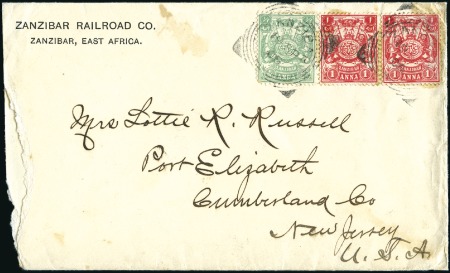 ZANZIBAR RAILROAD CO.
ZANZIBAR, EAST AFRICA.
1 1 1
ANNA 1 1 ANNA 1
Mrs Lottie R. Russell
Port Elizabeth
Cumberland Co
New Jersey
U. S. A.